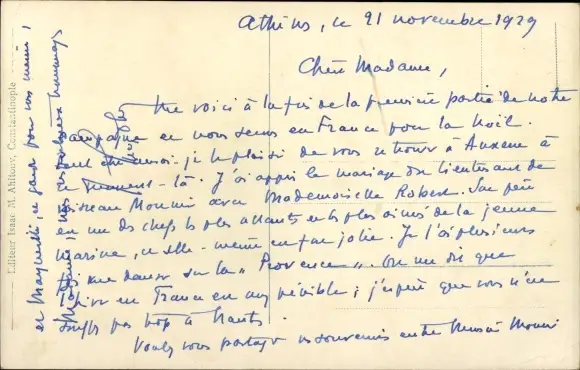 Athènes, le 21 novembre 1929
Chère Madame,
Me voici à la fin de la première partie de notre
campagne et nous serons en France pour la Noël.
Peut être aurai-je le plaisir de vous retrouver à Auxerre à
ce moment-là. J'ai appris le mariage du lieutenant de
vaisseau Mounier avec Mademoiselle Robert. J'ai
en un des chefs les plus allants et les plus aimés de la jeune
Marine, et elle-même est fort jolie. Je l'ai plusieurs
fois vue danser sur la "Provence". On me dit que
l'hiver en France est assez pénible ; j'espère que vous n'en
souffrez pas trop à
Voulez vous partager mes souvenirs entre
et Marguerite, et garder pour vous même,
Madame, mes respectueux hommages
Editeur Isaac M. Ahitouv, Constantinople